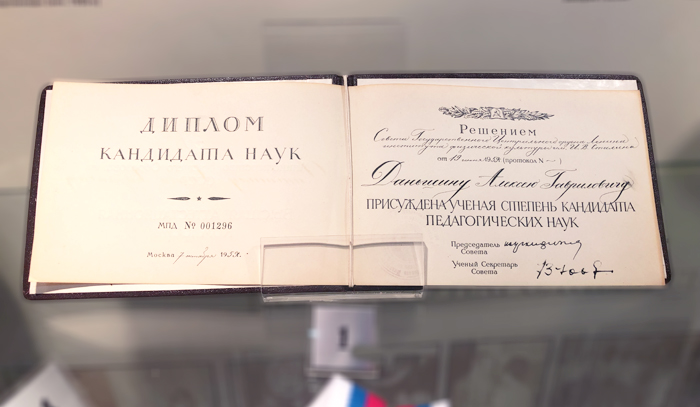 ДИПЛОМ
КАНДИДАТА НАУК
МПД № 001296
Москва
Решением
Совета Государственного Центрального ордена Ленина
института физической культуры им. И.В. Сталина
от 19 (протокол №--)
Даньшину Гавриловичу
ПРИСУЖДЕНА УЧЕНАЯ СТЕПЕНЬ КАНДИДАТА
ПЕДАГОГИЧЕСКИХ НАУК
Председатель
Совета
Ученый Секретарь
Совета